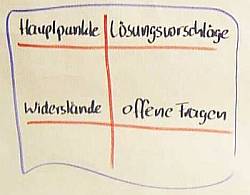 Hauptpunkte Lösungsvorschläge
Widerstände offene Fragen